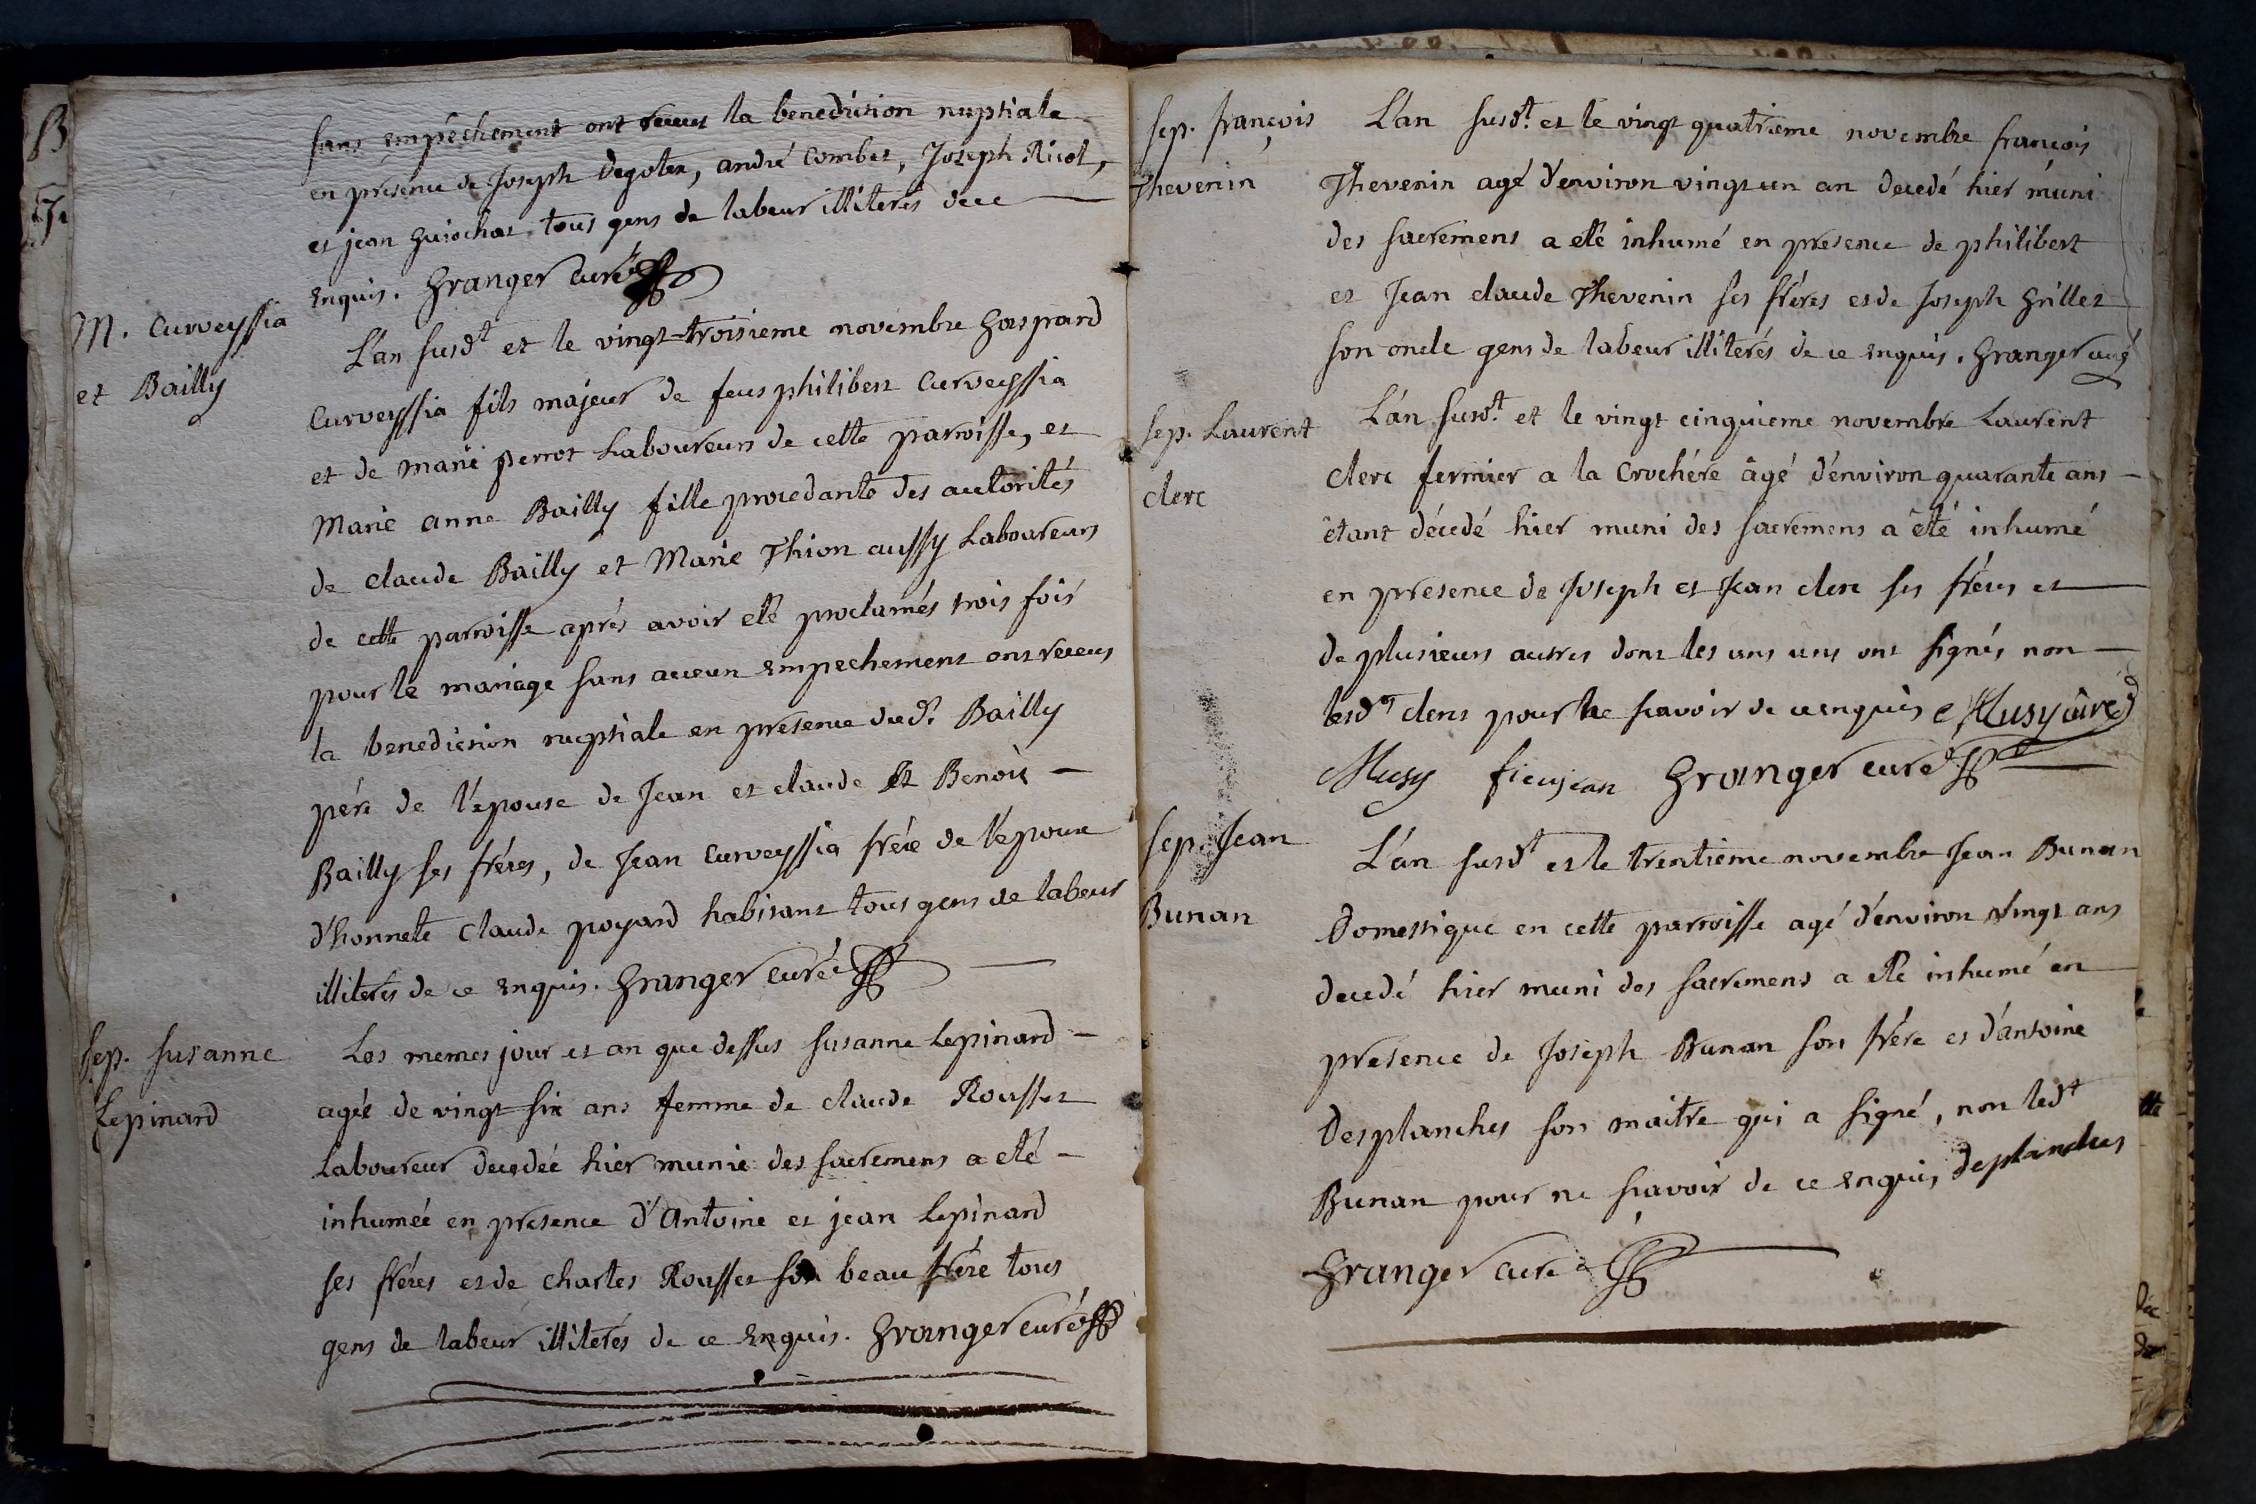 sans empêchement ont receus la benediction nuptiale
en présence de Joseph Degoter, andré Combet, Joseph Ricol,
et jean Guiochat tous gens de labeur illiterés de ce
enquis. Granger curé
M. Curveyssia
et Bailly
L'an susdt et le vingt-troisieme novembre Gaspard
Curveyssia fils majeur de feus philibert Curveyssia
et de marie perrot Laboureurs de cette parroisse, et
Marie anne Bailly fille procedante des autorités
de claude Bailly et Marie Thion aussy Laboureurs
de cette parroisse aprés avoir eté proclamés trois fois
pour le mariage sans aucun empechement ont receus
la benediction nuptiale en présence dud. Bailly
pére de l'epouse de Jean et claude et Benoit
Bailly ses fréres, de Jean Curveyssia frére de l'epoux
d'honnete Claude poyard habitant tous gens de labeur
illiterés de ce enquis. Granger curé
sep. susanne
Lepinard
Les memes jour et an que dessus susanne Lepinard
agée de vingt six ans femme de claude Rousset
Laboureur decedée hier munie des sacremens a eté
inhumée en presence d'Antoine et jean Lepinard
ses fréres et de charles Rousset son beau frére tous
gens de labeur illiterés de ce enquis. Granger curé
sep. françois
Thevenin
L'an susdt. et le vingt quatrieme novembre françois
Thevenin agé d'environ vingt un an decedé hier muni
des sacremens a eté inhumé en presence de philibert
et Jean claude Thevenin ses fréres et de Joseph Grillet
son oncle gens de labeur illiterés de ce enquis. Granger curé
sep. Laurent
clerc
L'an susdt. et le vingt cinquieme novembre Laurent
clerc fermier a la Crochére âgé d'environ quarante ans
étant décedé hier muni des sacremens a été inhumé
en presence de Joseph et Jean clerc ses fréres et
de plusieurs autres dont les uns uns ont signés non
lesds clercs pour ne scavoir de ce enquis Musy curé
Musy fieujean Granger curé
sep. Jean
Bunan
L'an susdt et le trentieme novembre Jean Bunan
Domestique en cette parroisse agé d'environ vingt ans
decedé hier muni des sacremens a eté inhumé en
presence de Joseph Bunan son frére et d'antoine
Desplanches son maitre qui a signé, non ledt
Bunan pour ne scavoir de ce enquis, deplanches
Granger curé